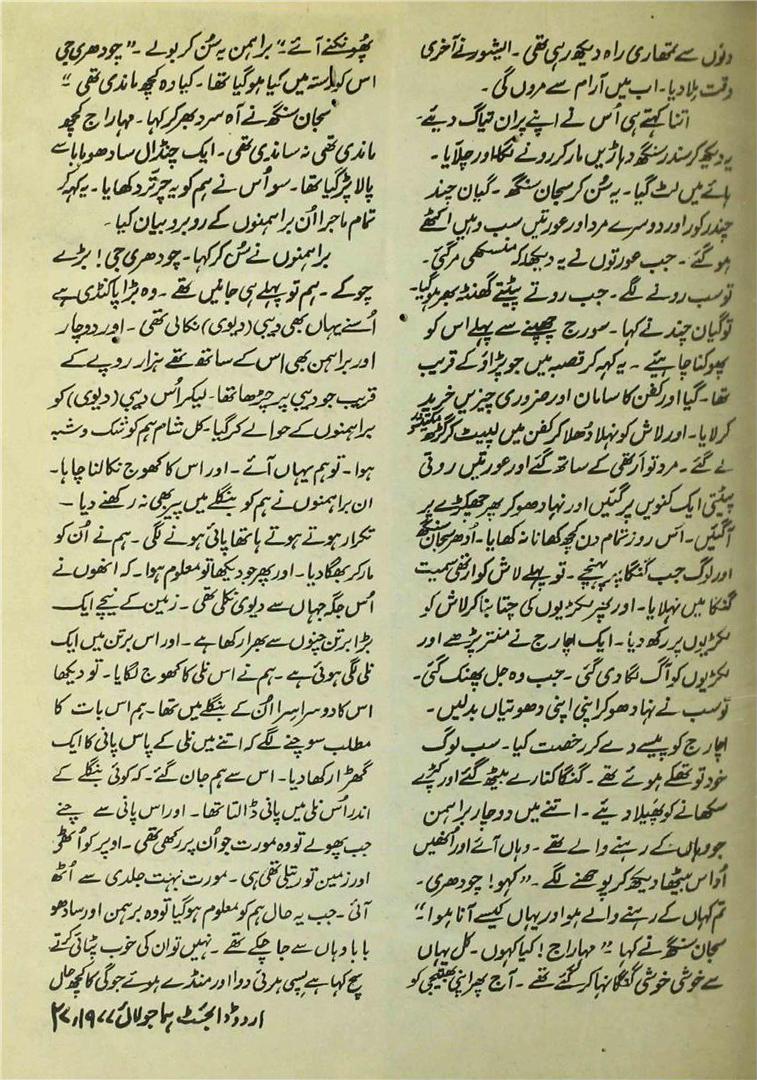 دنوں سے تمھاری راہ دیکھ رہی تھی ۔ ایشور نے آخری
وقت ملا دیا ۔ اب میں آرام سے مروں گی ۔
اتنا کہتے ہی اُس نے اپنے پران تیاگ دیئے ۔
یہ دیکھ کر سندر سنگھ دہاڑیں مار کر رونے لگا اور چلّایا ۔
ہائے میں لٹ گیا ۔ یہ سُن کر سجان سنگھ ۔ گیان چند
چندر کور اور دوسرے مرد اور عورتیں سب وہیں اکٹھے
ہو گئے ۔ جب عورتوں نے یہ دیکھا کہ مر گئی ۔
تو سب رونے لگے ۔ جب روتے پیٹتے گھنٹہ بھر ہو گیا ۔
تو گیان چند نے کہا ۔ سورج چھپنے سے پہلے اس کو
پھوکنا چاہیئے ۔ یہ کہہ کر قصبہ میں جو پڑاؤ کے قریب
تھا ۔ گیا اور کفن کا سامان اور ضروری چیزیں خرید
کر لایا ۔ اور لاش کو نہلا دُھلا کر کفن میں لپیٹ کر گڑھ
لے گئے ۔ مرد تو ارتھی کے ساتھ گئے اور عورتیں روتی
پیٹتی ایک کنویں پر گئیں اور نہا دھو کر پھر چھکڑے پر
آگئیں ۔ اس روز تمام دن کچھ کھانا نہ کھایا ۔ اُدھر سجان سنگھ
اور لوگ جب گنگا پر پہنچے ۔ تو پہلے لاش کو ارتھی سمیت
گنگا میں نہلایا ۔ اور پھر لکڑیوں کی چتا بنا کر لاش کو
لکڑیوں پر رکھ دیا ۔ ایک اچارج نے منتر پڑھے اور
لکڑیوں کو آگ لگا دی گئی ۔ جب وہ جل پھنک گئی ۔
تو سب نے نہا دھو کر اپنی اپنی دھوتیاں بدلیں ۔
اچارج کو پیسے دے کر رخصت کیا ۔ سب لوگ
خود تو تھکے ہوئے تھے ۔ گنگا کنارے بیٹھ گئے اور کپڑے
سکھانے کو پھیلا دیئے ۔ اتنے میں دو چار براہمن
جو وہاں کے رہنے والے تھے ۔ وہاں آئے اور اُنھیں
اُداس بیٹھا دیکھ کر پوچھنے لگے ۔ ”کہو! چودھری ۔
تم کہاں کے رہنے والے ہو اور یہاں کیسے آنا ہوا“
سجان سنگھ نے کہا ۔ ”مہاراج! کیا کہوں ۔ کل یہاں
سے خوشی خوشی گنگا نہا کر گئے تھے ۔ آج پھر اپنی بھتیجی کو
پھونکنے آئے ۔“ براہمن یہ سُن کر بولے ۔ ”چودھری جی
اس کو راستہ میں کیا ہو گیا تھا ۔ کیا وہ کچھ ماندی تھی“
سجان سنگھ نے آہ سرد بھر کر کہا ۔ مہاراج کچھ
ماندی تھی نہ ساندی تھی ۔ ایک چنڈال سادھو بابا سے
پالا پڑ گیا تھا ۔ سو اُس نے ہم کو یہ چرتّر دکھایا ۔ یہ کہہ کر
تمام ماجرا اُن براہمنوں کے روبرو بیان کیا ۔
براہمنوں نے سُن کر کہا ۔ چودھری جی! بڑے
چوکے ۔ ہم تو پہلے ہی جانیں تھے ۔ وہ بڑا پاکنڈی ہے
اُسنے یہاں بھی دیبی (دیوی) نکالی تھی ۔ اور دو چار
اور براہمن بھی اس کے ساتھ تھے ہزار روپے کے
قریب جو دیبی پر چڑھا تھا ۔ لیکر اُس دیبی (دیوی) کو
براہمنوں کے حوالے کر گیا ۔ کل شام ہم کو شک و شبہ
ہوا ۔ تو ہم یہاں آئے ۔ اور اس کا کھوج نکالنا چاہا ۔
ان براہمنوں نے ہم کو بنگلے میں پیر بھی نہ رکھنے دیا —
تکرار ہوتے ہوتے ہاتھا پائی ہونے لگی ۔ ہم نے اُن کو
مار کر بھگا دیا ۔ اور پھر جو دیکھا تو معلوم ہوا ۔ کہ انھوں نے
اُس جگہ جہاں سے دیوی نکلی تھی ۔ زمین کے نیچے ایک
بڑا برتن چنوں سے بھرا رکھا ہے ۔ اور اس برتن میں ایک
نلی لگی ہوئی ہے ۔ ہم نے اس نلی کا کھوج لگایا ۔ تو دیکھا
اس کا دوسرا سِرا اُن کے بنگلے میں تھا ۔ ہم اس بات کا
مطلب سوچنے لگے کہ اتنے میں نلی کے پاس پانی کا ایک
گھڑا رکھا دیا ۔ اس سے ہم جان گئے ۔ کہ کوئی بنگلے کے
اندر اُس نلی میں پانی ڈالتا تھا ۔ اور اس پانی سے چنے
جب پھولے تو وہ مورت جو اُن پر رکھی تھی ۔ اوپر کو اُٹھی
اور زمین تو رتیلی تھی ہی ۔ مورت بہت جلدی سے اُٹھ
آئی ۔ جب یہ حال ہم کو معلوم ہو گیا تو وہ برہمن اور سادھو
بابا وہاں سے جا چکے تھے ۔ نہیں تو ان کی خوب پٹائی کرتے
سچ کہا ہے پسی ہوئی دوا اور منڈے ہوئے جوگی کا کچھ حال
اردو ڈائجسٹ ہما جولائی ۱۹۷۷ء ۲۷